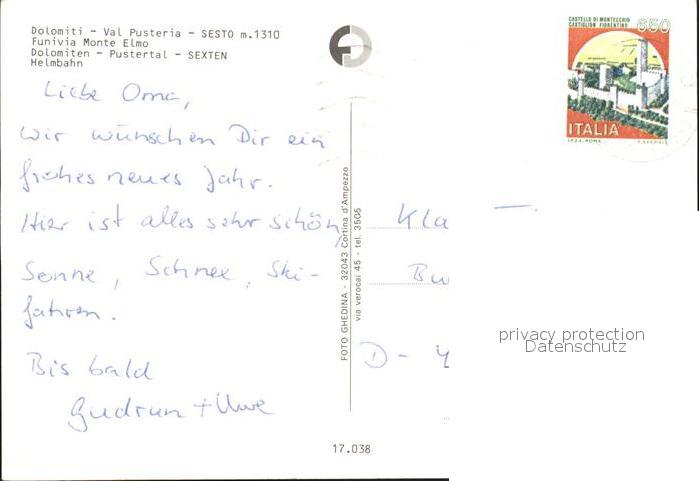 Dolomiti - Val Pusteria - SESTO m.1310
Funivia Monte Elmo
Dolomiten - Pustertal - SEXTEN
Helmbahn
Liebe Oma,
wir wünschen Dir ein
frohes neues Jahr.
Hier ist alles sehr schön,
Sonne, Schnee, Ski-
fahren.
Bis bald
Gudrun + Uwe
17.038
FOTO GHEDINA - 32043 Cortina d'Ampezzo
via verocai 45 - tel. 3505
CASTELLO DI MONTECCHIO
CASTIGLION FIORENTINO
650
ITALIA
I.P.Z.S. ROMA
Kla
Bu
D - 4
privacy protection
Datenschutz